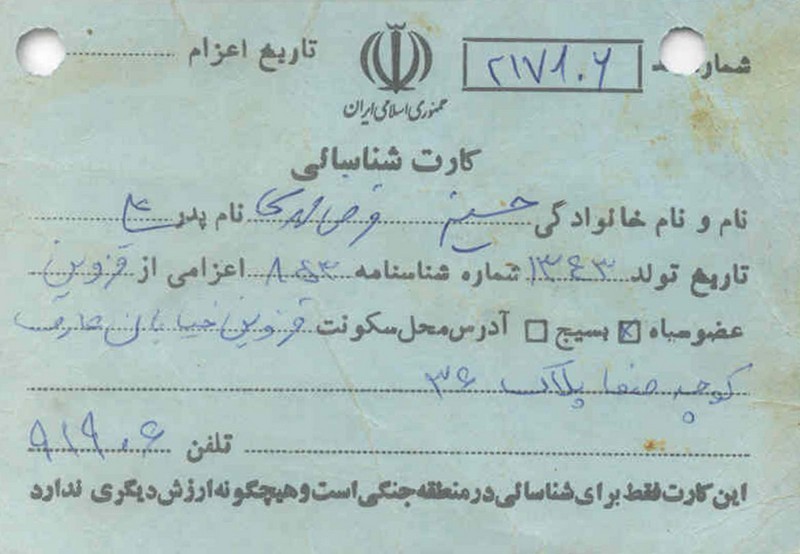 شماره ۲۱۷۸۰۶
تاریخ اعزام
جمهوری اسلامی ایران
کارت شناسائی
نام و نام خانوادگی حسین نام پدر علی
تاریخ تولد ۱۳۴۳ شماره شناسنامه ۸۵۳ اعزامی از قزوین
عضو سپاه بسیج آدرس محل سکونت قزوین خیابان عارف
کوچه صفا پلاک ۳۶
تلفن ۸۱۹۰۶
این کارت فقط برای شناسائی در منطقه جنگی است و هیچگونه ارزش دیگری ندارد